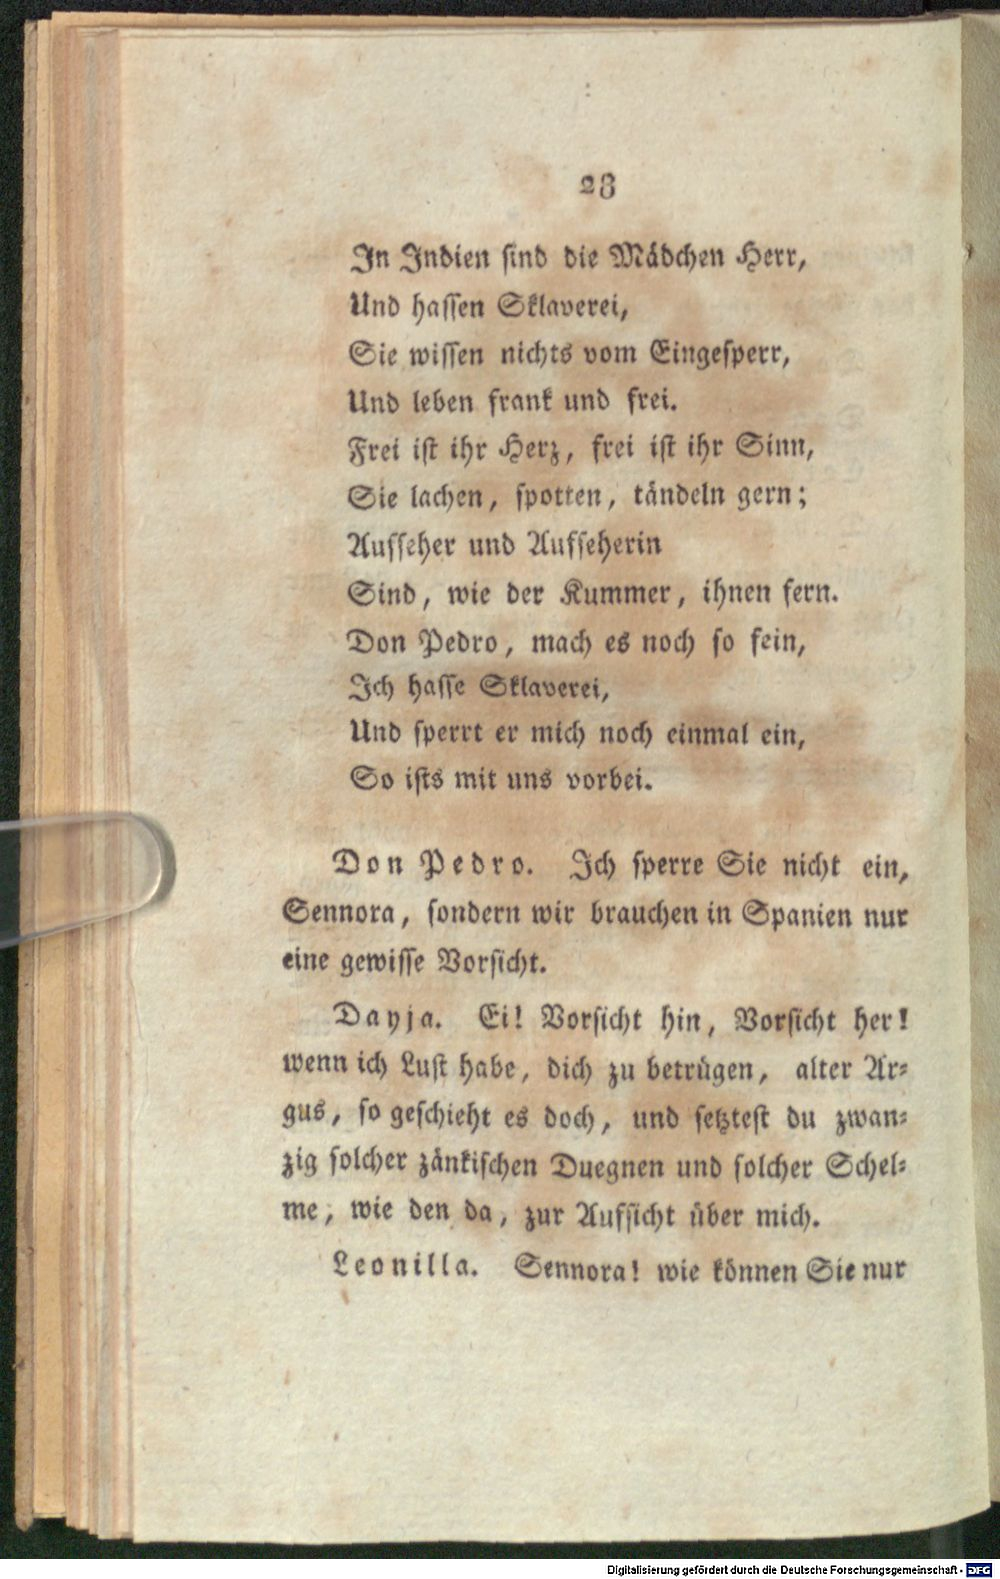 28
In Indien sind die Mädchen Herr,
Und hassen Sklaverei,
Sie wissen nichts vom Eingesperr,
Und leben frank und frei.
Frei ist ihr Herz, frei ist ihr Sinn,
Sie lachen, spotten, tändeln gern;
Aufseher und Aufseherin
Sind, wie der Kummer, ihnen fern.
Don Pedro, mach es noch so fein,
Ich hasse Sklaverei,
Und sperrt er mich noch einmal ein,
So ists mit uns vorbei.
Don Pedro. Ich sperre Sie nicht ein,
Sennora, sondern wir brauchen in Spanien nur
eine gewisse Vorsicht.
Dayja. Ei! Vorsicht hin, Vorsicht her!
wenn ich Lust habe, dich zu betrügen, alter Ar-
gus, so geschieht es doch, und setztest du zwan-
zig solcher zänkischen Duegnen und solcher Schel-
me, wie den da, zur Aufsicht über mich.
Leonilla. Sennora! wie können Sie nur
Digitalisierung gefördert durch die Deutsche Forschungsgemeinschaft - DFG